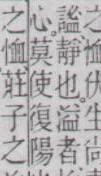 之恤伏生尚
謐靜也溢者
心莫使復陽
之恤莊子之